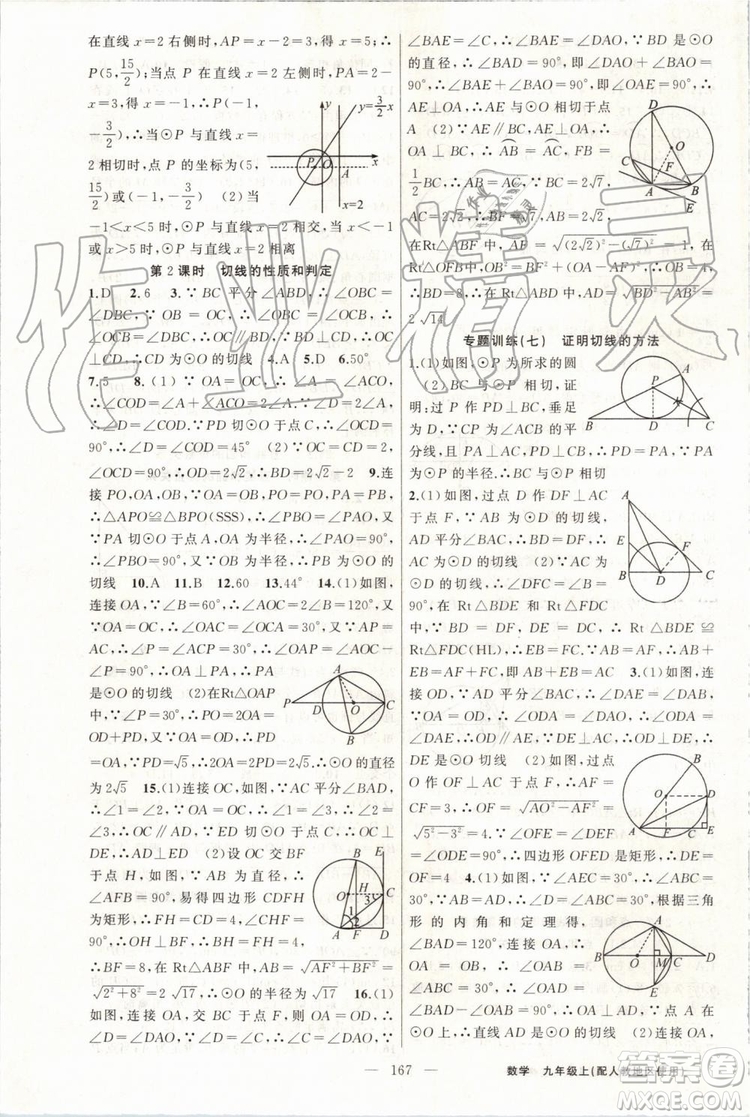 在直线 x=2 右侧时,AP=x-2=3,∴x=5;∴
P(5,15/2);当点 P 在直线 x=2 左侧时,PA=2-
x=3,得 x=-1,∴P(-1,
-3/2),∴当⊙P 与直线 x=
2 相切时,点 P 的坐标为(5,
15/2)或(-1,-3/2) (2)当
-1<x<5 时,⊙P 与直线 x=2 相交,当 x<-1
或 x>5 时,⊙P 与直线 x=2 相离
y
y=3/2 x
P
O
A
x
x=2
第 2 课时 切线的性质和判定
1.D 2.6 3.∵BC 平分∠ABD,∴∠OBC=
∠DBC,∵OB=OC,∴∠OBC=∠OCB,
∴∠DBC=∠OCB,∴OC∥BD,∵BD⊥CD,∴OC
⊥CD,∴CD 为⊙O 的切线 4.A 5.D 6.50°
7.5 8.(1)∵OA=OC,∴∠A=∠ACO,
∴∠COD=∠A+∠ACO=2∠A,∵∠D=2∠A,
∴∠D=∠COD,∵PD 与⊙O 相切于点 C,∴∠OCD
=90°,∴∠D=∠COD=45° (2)∵∠D=∠COD,
∠OCD=90°,∴OD=2√2,∴BD=2√2-2 9.连
接 PO,OA,OB,∵OA=OB,PA=PB,PO=PO,
∴△APO≌△BPO(SSS),∴∠PBO=∠PAO,又∵
PA 切小圆于点 A,∴∠PAO=90°,∴∠PBO=
90°,∴PB⊥OB,又∵OB=OA,∴PB 是小⊙O 的
切线 10.A 11.B 12.60 13.44° 14.(1)如图,
连接 OA,OB,∵∠B=60°,∴∠AOC=2∠B=120°,
又∵OA=OC,∴∠OAC=∠OCA=30°,又∵AP=
AC,∴∠P=∠ACP=30°,∴∠OAP=∠AOC-
∠P=90°,∴OA⊥PA,∴PA
是⊙O 的切线 (2)在Rt△OAP
中,∵∠P=30°,∴PO=2OA
=OD+PD,又∵OA=OD,
∴PD=OA,∵PD=√5,∴2OA=2PD=2√5,∴⊙O 的直径
为 2√5 15.(1)连接 OC,如图,∵AC平分∠FAB,
∴∠1=∠2,∵OA=OC,∴∠1=∠3,∴∠2=∠3,
∴OC∥AD,∵ED 切⊙O 于点 C,∴OC⊥DE,
∴AD⊥ED (2)设 OC 交 BF
于点 H,如图,∵AB为直径,∴
∠AFB=90°,易得四边形 CDFH
为矩形,∴FH=CD=4,∠CHF=
90°,∴OH⊥BF,∴BH=FH=4,
∴BF=8,在 Rt△ABF 中,AB=√(AF²+BF²)=
√(2²+8²)=2√17,∴⊙O 的半径为√17 16.(1)
如图,连接OA,交BC于F,则OA=OD,
∴∠D=∠DAO,∵∠D=∠C,∴∠C=∠DAO,∵
P
A
D
O
C
B
B
E
O
H
C
1
2
3
A
F
D
∠BAE=∠C,∴∠BAE=∠DAO,∵AD 是⊙O
的直径,∴∠DAB=90°,即∠DAO+∠OAB=
90°,∴∠BAE+∠OAB=90°,即∠OAE=90°,∴
AE⊥OA,∴AE 与⊙O 相切于点
A (2)∵AE∥BC,AE⊥OA,
∴OA⊥BC,∴AB=AC,FB=
1/2 BC,∴AB=AC,∵BC=2√7,
AC=2√2,∴BF=√7,AB=2√2,
在Rt△ABF中,AF=√((2√2)²-(√7)²)=1,
在Rt△OFB中,OB²=BF²+
(OB-AF)²,∴OB=4,∴BD=8,∴在Rt△ABD
2√14
D
O
F
C
A
B
E
专题训练(七) 证明切线的方法
1.(1)如图,⊙P 为所求的圆
(2)BC 与⊙P 相切,证
明:过 P 作 PD⊥BC,垂足
为 D,∵CP 为∠ACB 的平
分线,且 PA⊥AC,PD⊥CB,∴PD=PA,∵PA
为⊙P 的半径,∴BC与⊙P 相切
2.(1)如图,过点 D 作 DF⊥AC
于点 F,∵AB 为⊙D 的切线,
AD平分∠BAC,∴BD=DF,
∴AC 为⊙D 的切线 (2)∵AC
为⊙D 的切线,∴∠DFC=∠B=
90°,在 Rt△BDE 和 Rt△FDC
中,∵BD=DF,DE=DC,∴Rt△BDE≌
Rt△FDC(HL),∴EB=FC,∵AB=AF,∴AB+
EB=AF+FC,即AB+EB=AC 3.(1)如图,连
接OD,∵AD平分∠BAC,∴∠DAE=∠DAB,
∵OA=OD,∴∠ODA=∠DAO,∴∠ODA=
∠DAE,∴OD∥AE,∵DE⊥AC,∴OD⊥DE,∴
DE 是⊙O 切线 (2)如图,过点
O 作 OF⊥AC 于点 F,∴AF=
CF=3,∴OF=√(AO²-AF²)=
√(5²-3²)=4,∵∠OFE=∠DEF=
∠ODE=90°,∴四边形 OFED 是矩形,∴DE=OF
=4 4.(1)如图,连接OA,∵∠B=∠C=30°,根据三角
形的内角和定理得,
∠BAD=120°,连接 OA,∵
∴∠BAO=∠B=30°,∴
∠OAD=120°-30°=90°,∴OA⊥AD,∵点 A 在
⊙O 上,∴直线 AD是⊙O 的切线 (2)连接OA,∵
A
P
B
D
C
A
E
F
B
D
C
B
O
D
A
F
C
E
A
B
O
M
C
D
E
167
数学 九年级上(配人教地区使用)
作业精灵